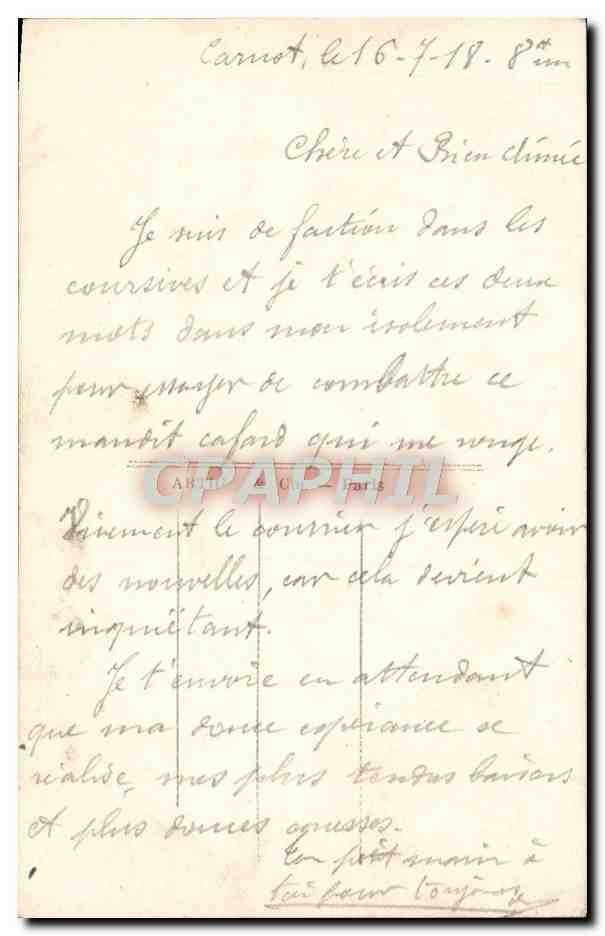 Carnot, le 16-7-18. 8h
Chère et Bien Aimée
Je suis de faction dans les
coursives et je t'écris ces deux
mots dans mon isolement
pour essayer de combattre ce
maudit cafard qui me ronge.
CPAPHIL
ARTIGE & Cie — Paris
Vivement le courrier j'espère avoir
des nouvelles, car cela devient
inquiétant.
Je t'envoie en attendant
que ma douce espérance se
réalise, mes plus tendres baisers
et plus douces caresses.
Ton petit marin à
toi pour toujours